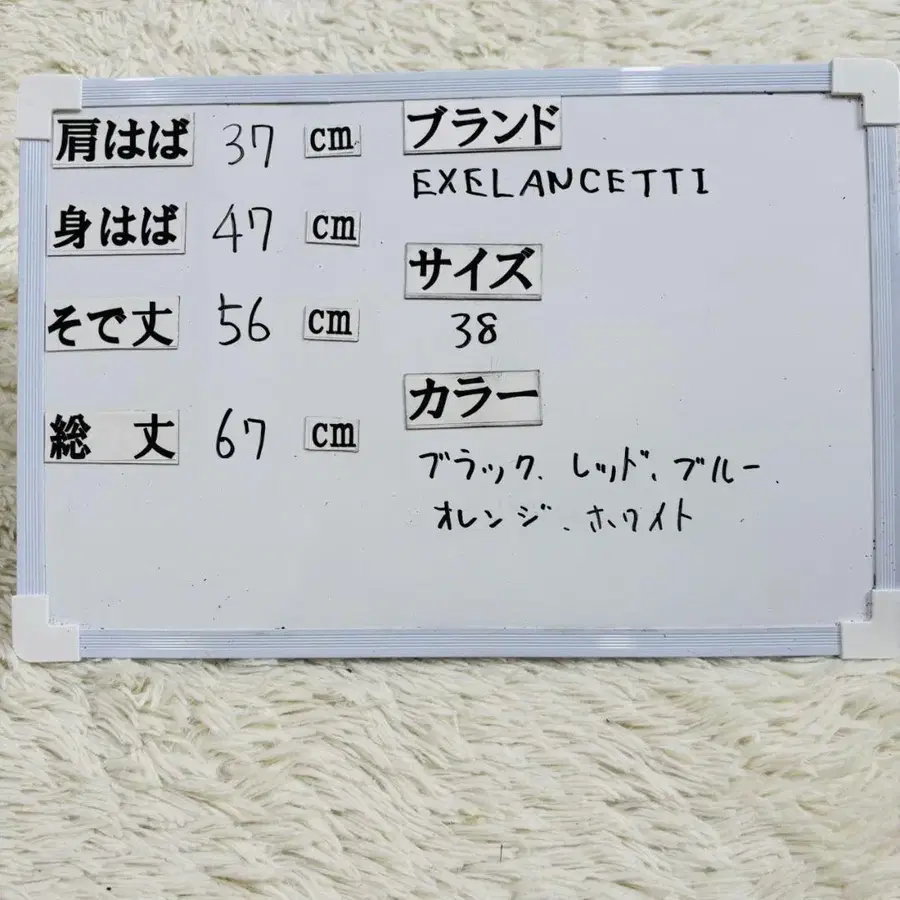 肩はば 37 cm
身はば 47 cm
そで丈 56 cm
総 丈 67 cm
ブランド
EXELANCETTI
サイズ
38
カラー
ブラック、レッド、ブルー、
オレンジ、ホワイト